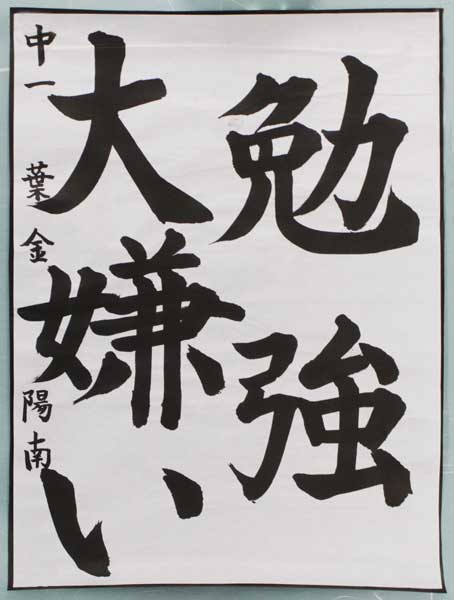 勉強
大嫌い
中一 葉金 陽南